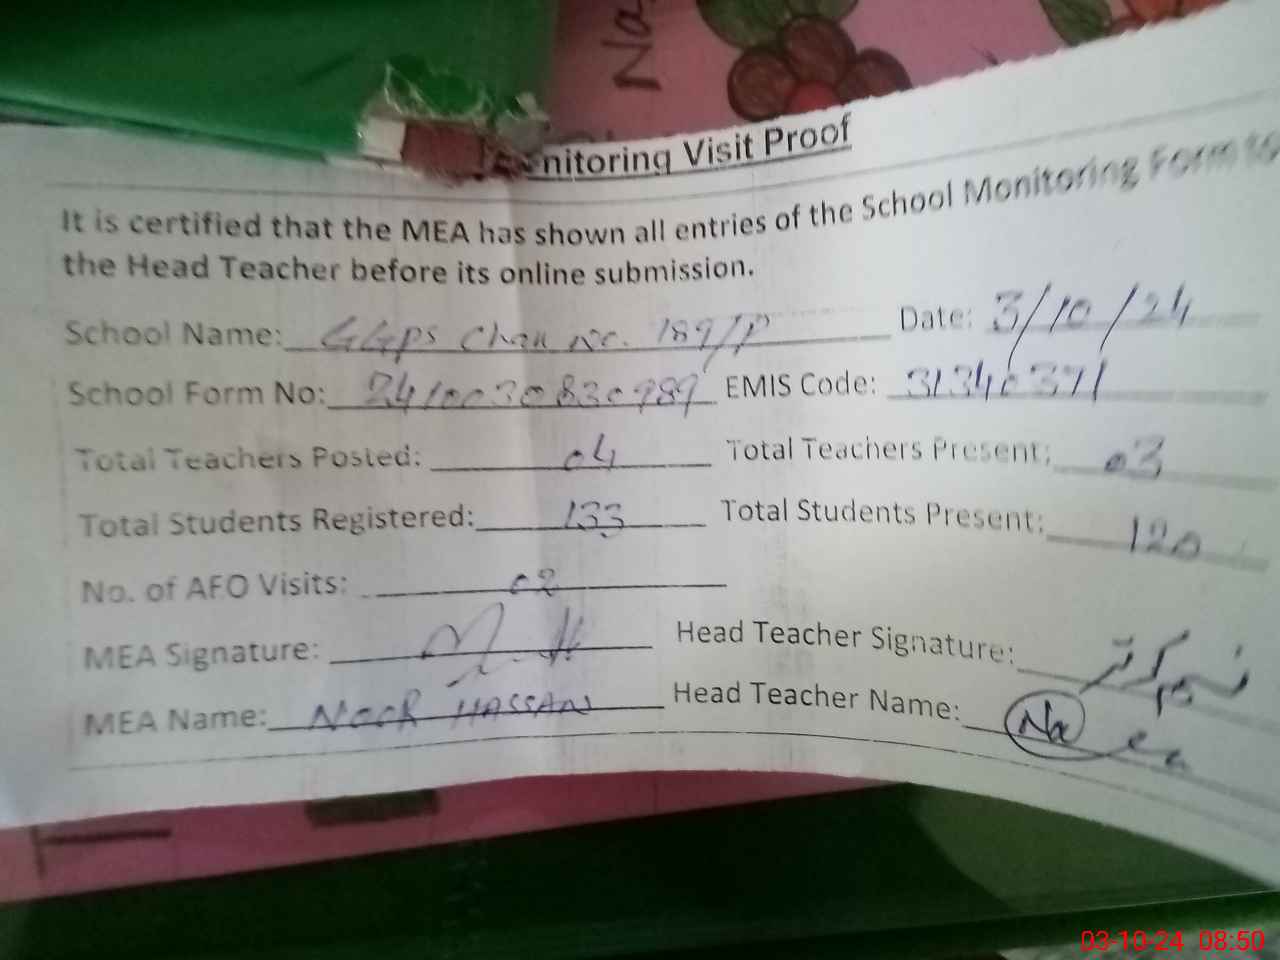 Na
nitoring Visit Proof
It is certified that the MEA has shown all entries of the School Monitoring Form to
the Head Teacher before its online submission.
School Name: GGPS Chak no. 189/P Date: 3/10/24
School Form No: EMIS Code: 31340371
Total Teachers Posted: 04 Total Teachers Present: 03
Total Students Registered: 133 Total Students Present: 120
No. of AFO Visits: 02
MEA Signature: Head Teacher Signature:
MEA Name: NOOR HASSAN Head Teacher Name:
03-10-24 08:50